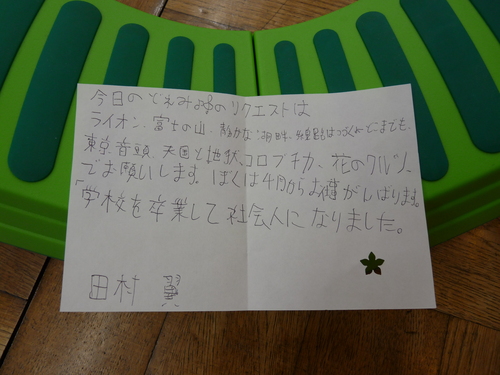 今日のどれみ♪♪のリクエストは
ライオン、富士の山、静かな湖畔、線路はつづくよどこまでも、
東京音頭、天国と地獄、コロブチカ、花のワルツ、
でお願いします。ぼくは4月からお仕事がんばります。
「学校を卒業して社会人になりました。
田村 翼